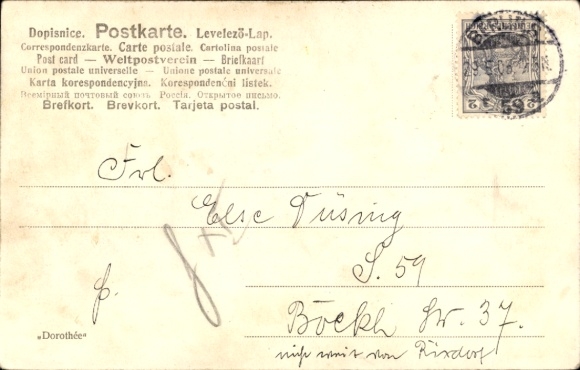 Dopisnice. Postkarte. Levelező-Lap.
Correspondenzkarte. Carte postale. Cartolina postale
Post card — Weltpostverein — Briefkaart
Union postale universelle — Unione postale universale
Karta korespondencyjna. Korespondenční lístek.
Всемірный почтовый союзъ Россія. Открытое письмо.
Brefkort. Brevkort. Tarjeta postal.
2 2
59
Frl.
Else Düsing
S. 59
p.
Böckh Str. 37.
„Dorothée“
nicht weit von Rixdorf